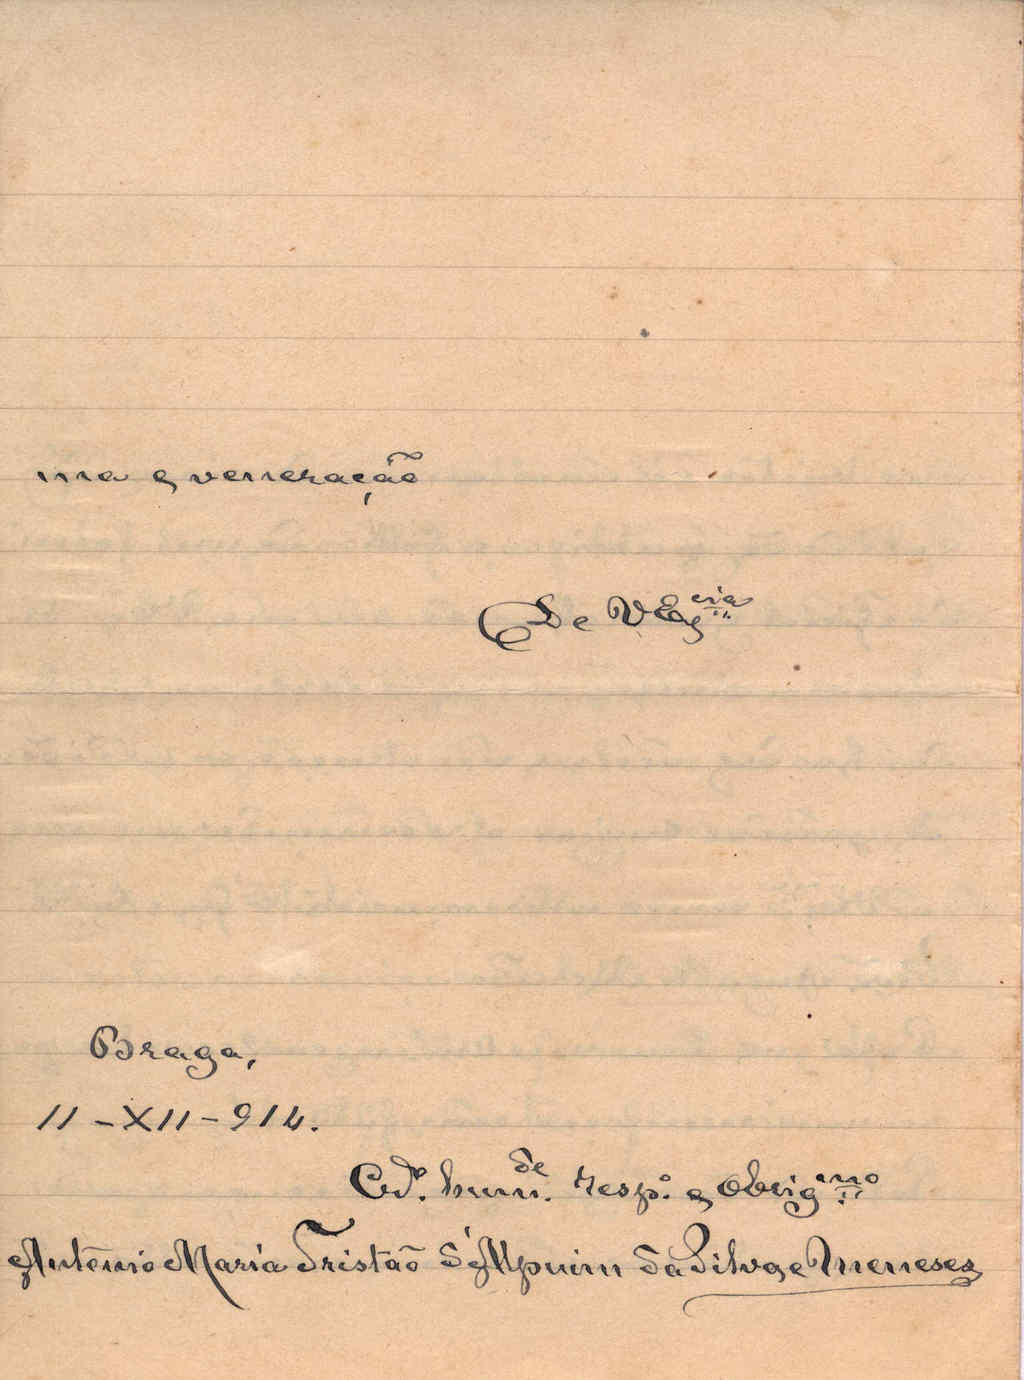 ma e veneração
De V Ex.cia
Braga,
11-XII-914.
Cd.º hum.de resp.º e Obrig.mo
António Maria Tristão d'Alpuim da Silva e Meneses